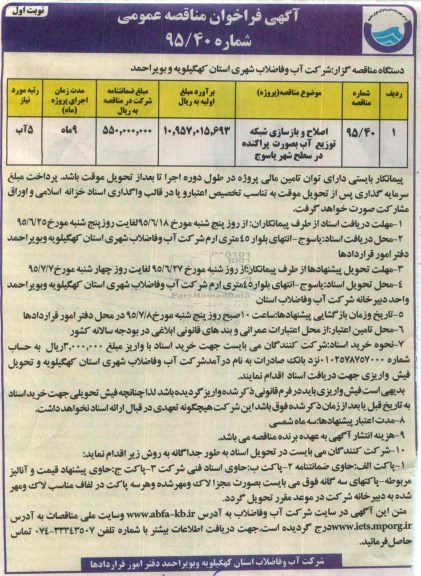 نوبت اول
آگهی فراخوان مناقصه عمومی
شماره ۹۵/۴۰
دستگاه مناقصه گزار: شرکت آب وفاضلاب شهری استان کهگیلویه و بویراحمد
ردیف شماره مناقصه موضوع مناقصه(پروژه) برآورد مبلغ اولیه به ریال مبلغ ضمانتنامه شرکت در مناقصه به ریال مدت زمان اجرای پروژه رتبه مورد نیاز
۱ ۹۵/۴۰ اصلاح و بازسازی شبکه توزیع آب بصورت پراکنده در سطح شهر یاسوج ۱۰,۹۵۷,۰۱۵,۶۹۳ ۵۵۰,۰۰۰,۰۰۰ ۹ماه ۵آب
پیمانکار بایستی دارای توان تامین مالی پروژه در طول دوره اجرا تا بعداز تحویل موقت باشد. پرداخت مبلغ
سرمایه گذاری پس از تحویل موقت به تناسب تخصیص اعتبار و یا در قالب واگذاری اسناد خزانه اسلامی و اوراق
مشارکت صورت خواهد گرفت.
۱-مهلت دریافت اسناد از طرف پیمانکاران: از روز پنج شنبه مورخ ۹۵/۶/۱۸ لغایت روز پنج شنبه مورخ ۹۵/۶/۲۵
۲-محل دریافت اسناد: یاسوج-انتهای بلوار ۴۵متری ارم شرکت آب وفاضلاب شهری استان کهگیلویه وبویراحمد
دفتر امور قراردادها
۳-مهلت تحویل پیشنهادها از طرف پیمانکار:از روز شنبه مورخ ۹۵/۶/۲۷ لغایت روز چهار شنبه مورخ ۹۵/۷/۷
۴-محل تحویل اسناد:یاسوج-انتهای بلوار۴۵متری ارم شرکت آب وفاضلاب شهری استان کهگیلویه وبویراحمد
واحد دبیرخانه شرکت آب وفاضلاب استان
۵-تاریخ وزمان بازگشایی پیشنهادها:ساعت ۱۰صبح روز پنج شنبه مورخ۹۵/۷/۸ در محل دفتر امور قراردادها
۶-محل تامین اعتبار:از محل اعتبارات عمرانی و بند های قانونی ابلاغی در بودجه سالانه کشور
۷-نحوه خرید اسناد:شرکت کنندگان می بایست جهت خرید اسناد با واریز مبلغ ۳,۰۰۰,۰۰۰ریال به حساب
شماره ۰۱۰۲۵۷۸۷۵۷۰۰۰ نزد بانک صادرات به نام درآمدشرکت آب وفاضلاب شهری استان کهگیلویه و تحویل
فیش واریزی جهت دریافت اسناد اقدام نمایند.
بدیهی است فیش واریزی باید در فرم قانونی ذکر شده واریز گردیده باشد لذا چنانچه فیش تحویلی جهت خرید اسناد
به تاریخ قبل یا بعد از زمان ذکر شده فوق باشد این شرکت هیچگونه تعهدی در قبال ارائه اسناد نخواهد داشت.
۸-مدت اعتبار پیشنهادها:سه ماه شمسی
۹-هزینه انتشار آگهی به عهده برنده مناقصه می باشد.
۱۰-شرکت کنندگان می بایست در تحویل اسناد به طور جداگانه به روش زیر اقدام نماید:
۱-پاکت الف:حاوی ضمانتنامه ۲-پاکت ب:حاوی اسناد فنی شرکت ۳-پاکت ج:حاوی پیشنهاد قیمت و آنالیز
مربوطه-پاکتهای سه گانه فوق می بایست بصورت مجزا لاک ومهرشده وهرسه پاکت در لفاف مناسب لاک ومهر
شده به دبیرخانه شرکت در موعد مقرر تحویل گردد.
متن این آگهی در سایت شرکت آب وفاضلاب به آدرس www.abfa-kb.ir وسایت ملی مناقصات به آدرس
www.iets.mporg.ir درج گردیده است.جهت دریافت اطلاعات بیشتر با شماره تلفن ۳۳۳۴۳۵۰۷-۰۷۴ تماس
حاصل فرمائید.
شرکت آب وفاضلاب استان کهگیلویه وبویراحمد دفتر امور قراردادها